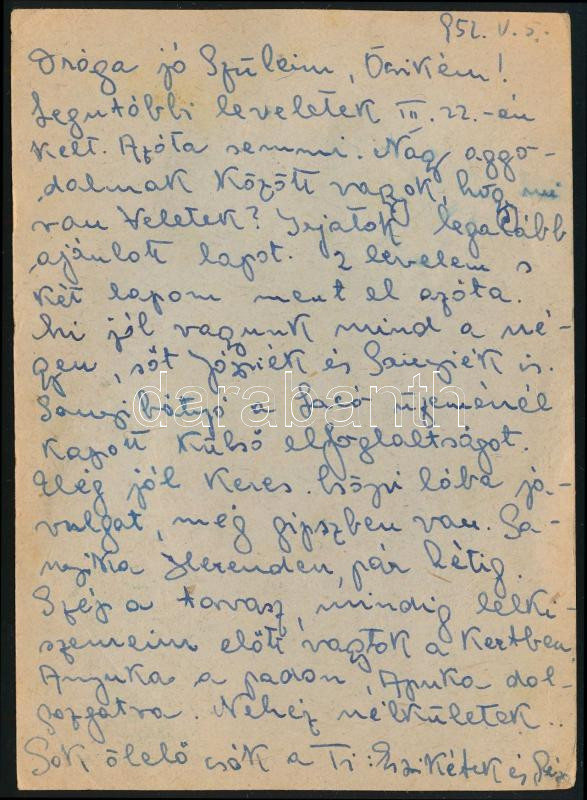 952. V. 5.
Dróga jó Szüleim, Öcsikém!
Legutóbbi leveletek III. 22.-én
kelt. Azóta semmi. Nagy aggo-
dalmak között vagok, hog mi
van Veletek? Irjatok legalább
ajánlott lapot. 2 levelem s
két lapom ment el azóta.
Mi jól vagyunk mind a né-
gyen, sőt Józsiék és Sanyiék is.
Sanyi bátyó a üzeménél
kapott külső elfoglaltságot.
Elég jól keres. lába ja-
vulgat, még gipszben van. Sa-
nyika Herenden, pár hétig.
Szép a tavasz, mindig lelki-
szemeim előtt vagytok a kertben
Anyuka a padon, Apuka dol-
gozgatva. Nehéz nélkületek..
Sok ölelő csók a Ti: és
darabanth